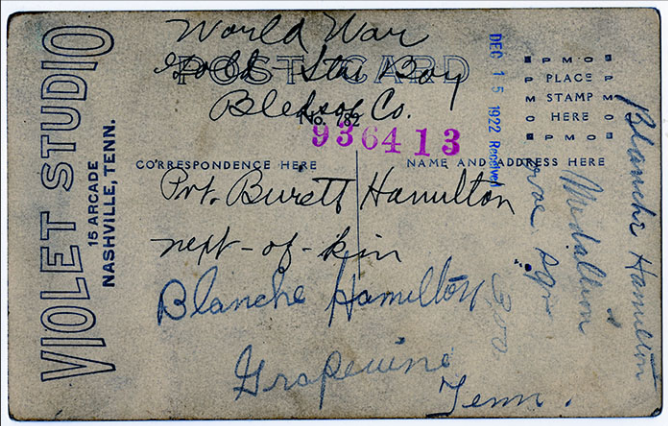 World War
Gold Star Boy
Bledsoe Co.
POST CARD
No. 782
936413
DEC 15 1922 Received
PLACE
STAMP
HERE
CORRESPONDENCE HERE
NAME AND ADDRESS HERE
Pvt. Burett Hamilton
next-of-kin
Blanche Hamilton
Grapevine
Tenn.
VIOLET STUDIO
15 ARCADE
NASHVILLE, TENN.
Blanche Hamilton
Medallion